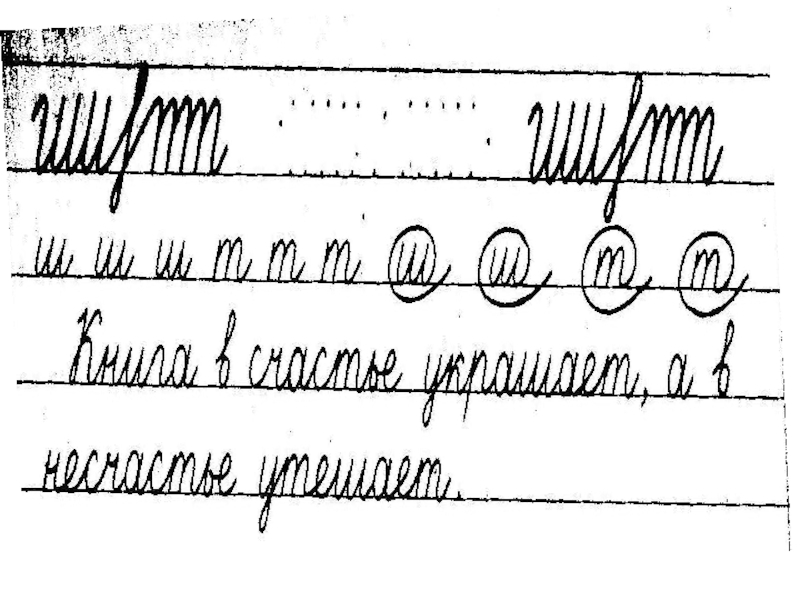 ш ш ш т т т ш ш т т
Книга в счастье украшает, а в
несчастье утешает.